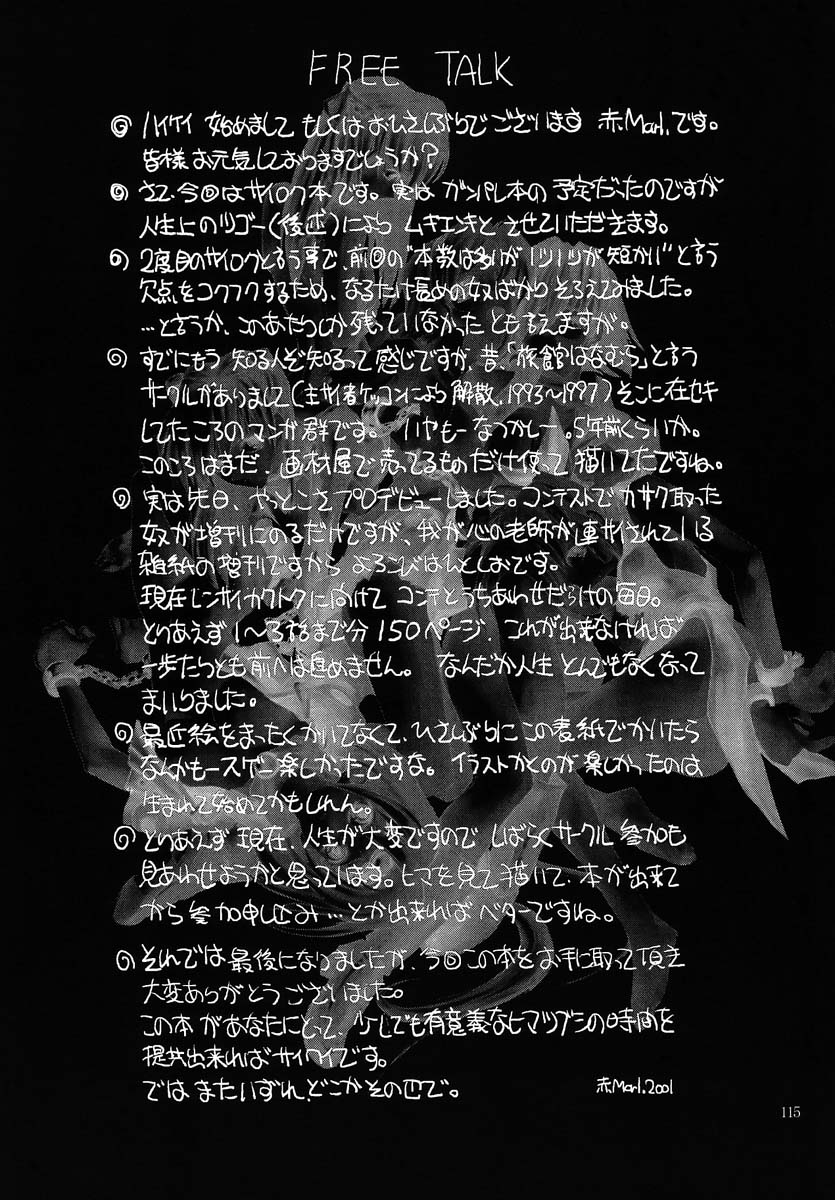 FREE TALK
◎ ハイケイ 始めまして もしくは おひさしぶりでございます 赤Marl.です。
皆様 お元気しておりますでしょうか?
◎ さて、今回はサイロク本です。実は ガンパレ本の 予定だったのですが
人生上のツゴー(後述)により ムキエンキと させていただきます。
◎ 2度目のサイロクと言う事で、前回の"本数は多いが 1ツ1ツが 短かい"と言う
欠点をコクフクするため、なるたけ長めの奴ばかり そろえてみました。
…と言うか、このあたりしか 残っていなかった とも 言えますが。
◎ すでにもう 知る人ぞ知るって 感じですが、昔、「旅館はなむら」と言う
サークルがありまして(主サイ者ケッコンにより 解散、1993〜1997)そこに在セキ
してたころの マンガ群です。 いやもー なつかしー。5年前くらいか。
このころはまだ、画材屋で 売ってるものだけ使って 描いてたですね。
◎ 実は先日、やっとこさプロデビューしました。コンテストで カサク取った
奴が増刊にのるだけですが、我が心の老師が 連サイされている
雑紙の増刊ですから よろこびはひとしおです。
現在レンサイカクトクに向けて コンテとうちあわせだらけの 毎日。
とりあえず 1〜3話まで分 150ページ、これが出来なければ
一歩たりとも 前へは進めません。 なんだか人生 とんでもなくなって
まいりました。
◎ 最近絵をまったくかいてなくて、ひさしぶりに この表紙でかいたら
なんかもースゲー楽しかったですな。 イラストかくのが 楽しかったのは
生まれて始めてかもしれん。
◎ とりあえず 現在、人生が大変ですので しばらくサークル 参加も
見あわせようかと思っています。ヒマを見て 描いて、本が出来て
から 参加申し込み…とか出来れば ベターですね。
◎ それでは 最後になりましたが、今回この本を お手に取って 頂き
大変ありがとうございました。
この本が あなたにとって、少しでも有意義なヒマツブシの時間を
提共出来れば サイワイです。
では またいずれ、どこかその辺で。
赤Marl.2001
115